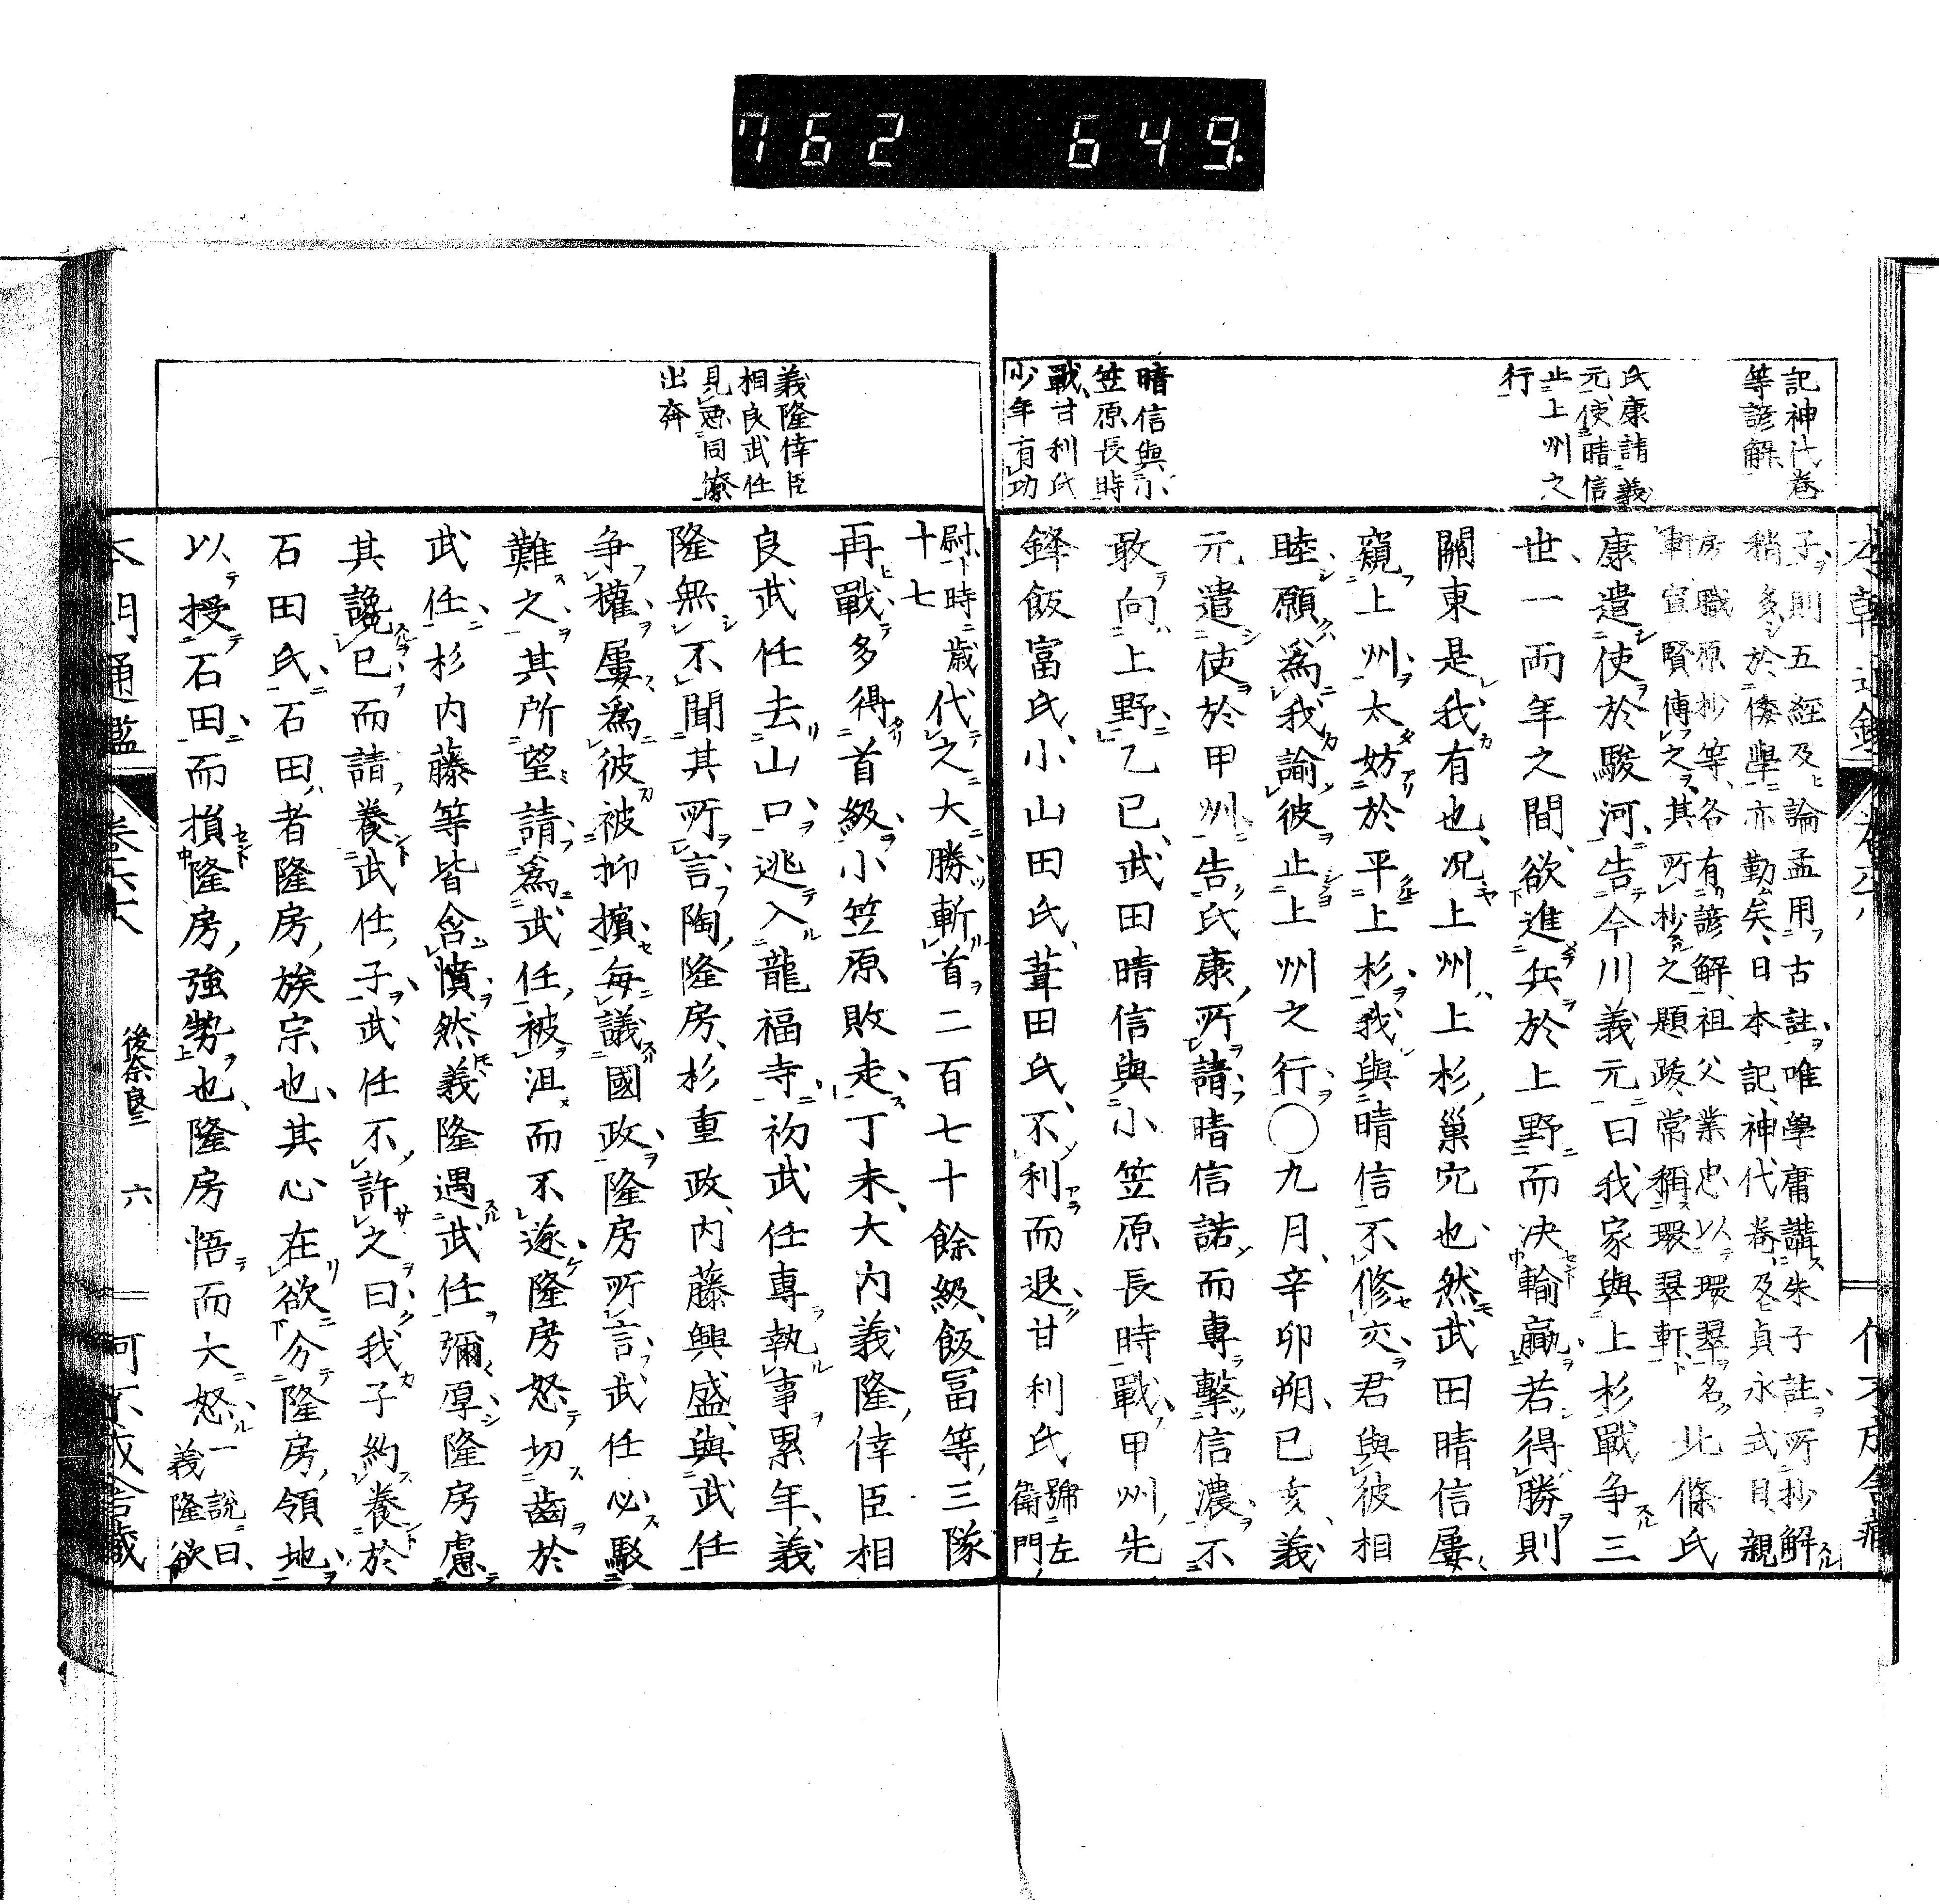 762 649
記神代卷
等諺解
氏康請義
元使晴信
止上州之
行
晴信與小
笠原長時
戰甘利氏
少年有功
子則五經及論孟用古註唯學庸講朱子註所抄解
稍多於倭學亦勤矣日本記神代卷及貞永式目親
房職原抄等各有諺解祖父業忠以環翠名
軒宣賢傳之其所抄之題跋常稱環翠軒
北條氏
康遣使於駿河告今川義元曰我家與上杉戰爭三
世一兩年之間欲進兵於上野而決輸贏若得勝則
關東是我有也况上州上杉巢穴也然武田晴信屢
窺上州太妨於平上杉我與晴信不修交君與彼相
睦願為我諭彼止上州之行〇九月辛卯朔己亥義
元遣使於甲州告氏康所請晴信諾而專擊信濃不
敢向上野乙巳武田晴信與小笠原長時戰甲州先
鋒飯富氏小山田氏葦田氏不利而退甘利氏
號左
衛門
義隆倖臣
相良武任
見惡同僚
出奔
尉時歲
十七
代之大勝斬首二百七十餘級飯冨等三隊
再戰多得首級小笠原敗走丁未大內義隆倖臣相
良武任去山口逃入龍福寺初武任專執事累年義
隆無不聞其所言陶隆房杉重政內藤興盛與武任
爭權屢為彼被抑擯每議國政隆房所言武任必駁
難之其所望請為武任被沮而不遂隆房怒切齒於
武任杉內藤等皆含憤然義隆遇武任彌厚隆房慮
其讒己而請養武任子武任不許之曰我子約養於
石田氏石田者隆房族宗也其心在欲分隆房領地
以授石田而損隆房強勢也隆房悟而大怒
一說曰
義隆欲
本朝通鑑
卷六十六
後奈良二
六